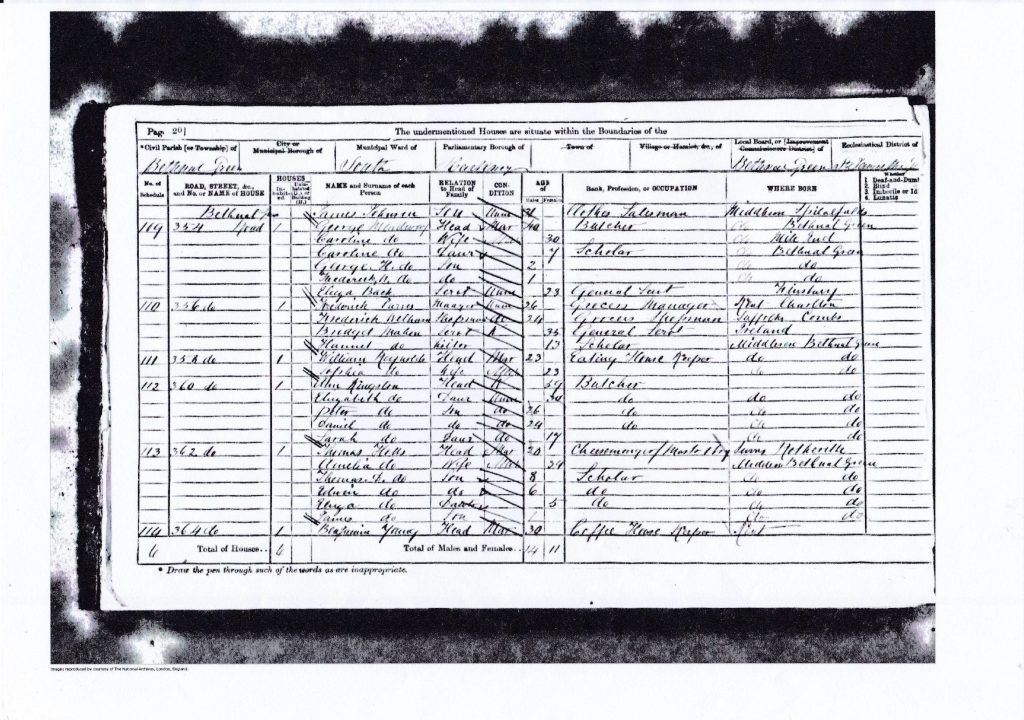 Page 20]
The undermentioned Houses are situate within the Boundaries of the
*Civil Parish [or Township] of
City or Municipal Borough of
Municipal Ward of
Parliamentary Borough of
Town of
Village or Hamlet, &c., of
Local Board, or [Improvement Commissioners District] of
Ecclesiastical District of
Bethnal Green South Hackney Bethnal Green
No. of Schedule
ROAD, STREET, &c., and No. or NAME of HOUSE
HOUSES
Inhabited
NAME and Surname of each Person
RELATION to Head of Family
CONDITION
AGE of
Males Females
Rank, Profession, or OCCUPATION
WHERE BORN
Whether
1. Deaf-and-Dumb
2. Blind
3. Imbecile or Id
4. Lunatic
Bethnal James Johnson Clothes Salesman Middlesex Spitalfields
109 354 Road 1 George Head Mar 40 Butcher Do Bethnal Green
Caroline do Wife 30 Do Mile End
Caroline do Daur 7 Scholar Do Bethnal Green
George H. do Son 2 Do do
Frederick do do 1 Do do
Eliza Back Servt Unm 23 General Servt Finsbury
110 356 do 1 Frederick Manager Unm 26 Grocers Manager Kent Charlton
Frederick Shopman do 24 Grocers Shopman Suffolk Combs
Bridget Servt 35 General Servt Ireland
do 13 Scholar Middlesex Bethnal Green
111 358 do 1 William Reynolds Head Mar 23 Eating House Keeper do do
Sophia do Wife Mar 23 do do
112 360 do 1 Ann Kingston Head 59 Butcher
Elizabeth do Daur Unm do do do
Peter do Son do 26 do do do
Daniel do do do 24 do do do
Sarah do Daur do 17 do do
113 362 do 1 Thomas Head Mar Cheesemonger
Amelia do Wife Mar Middlesex Bethnal Green
Thomas do Son 8 Scholar do do
Edwin do do 6 do do do
Eliza do 5 do do do
James do Son 1 do do
114 364 do 1 Benjamin Young Head Mar 30 Coffee House Keeper Kent
6 Total of Houses.. 6 Total of Males and Females.. 14 11
* Draw the pen through such of the words as are inappropriate.
Images reproduced by courtesy of The National Archives, London, England.